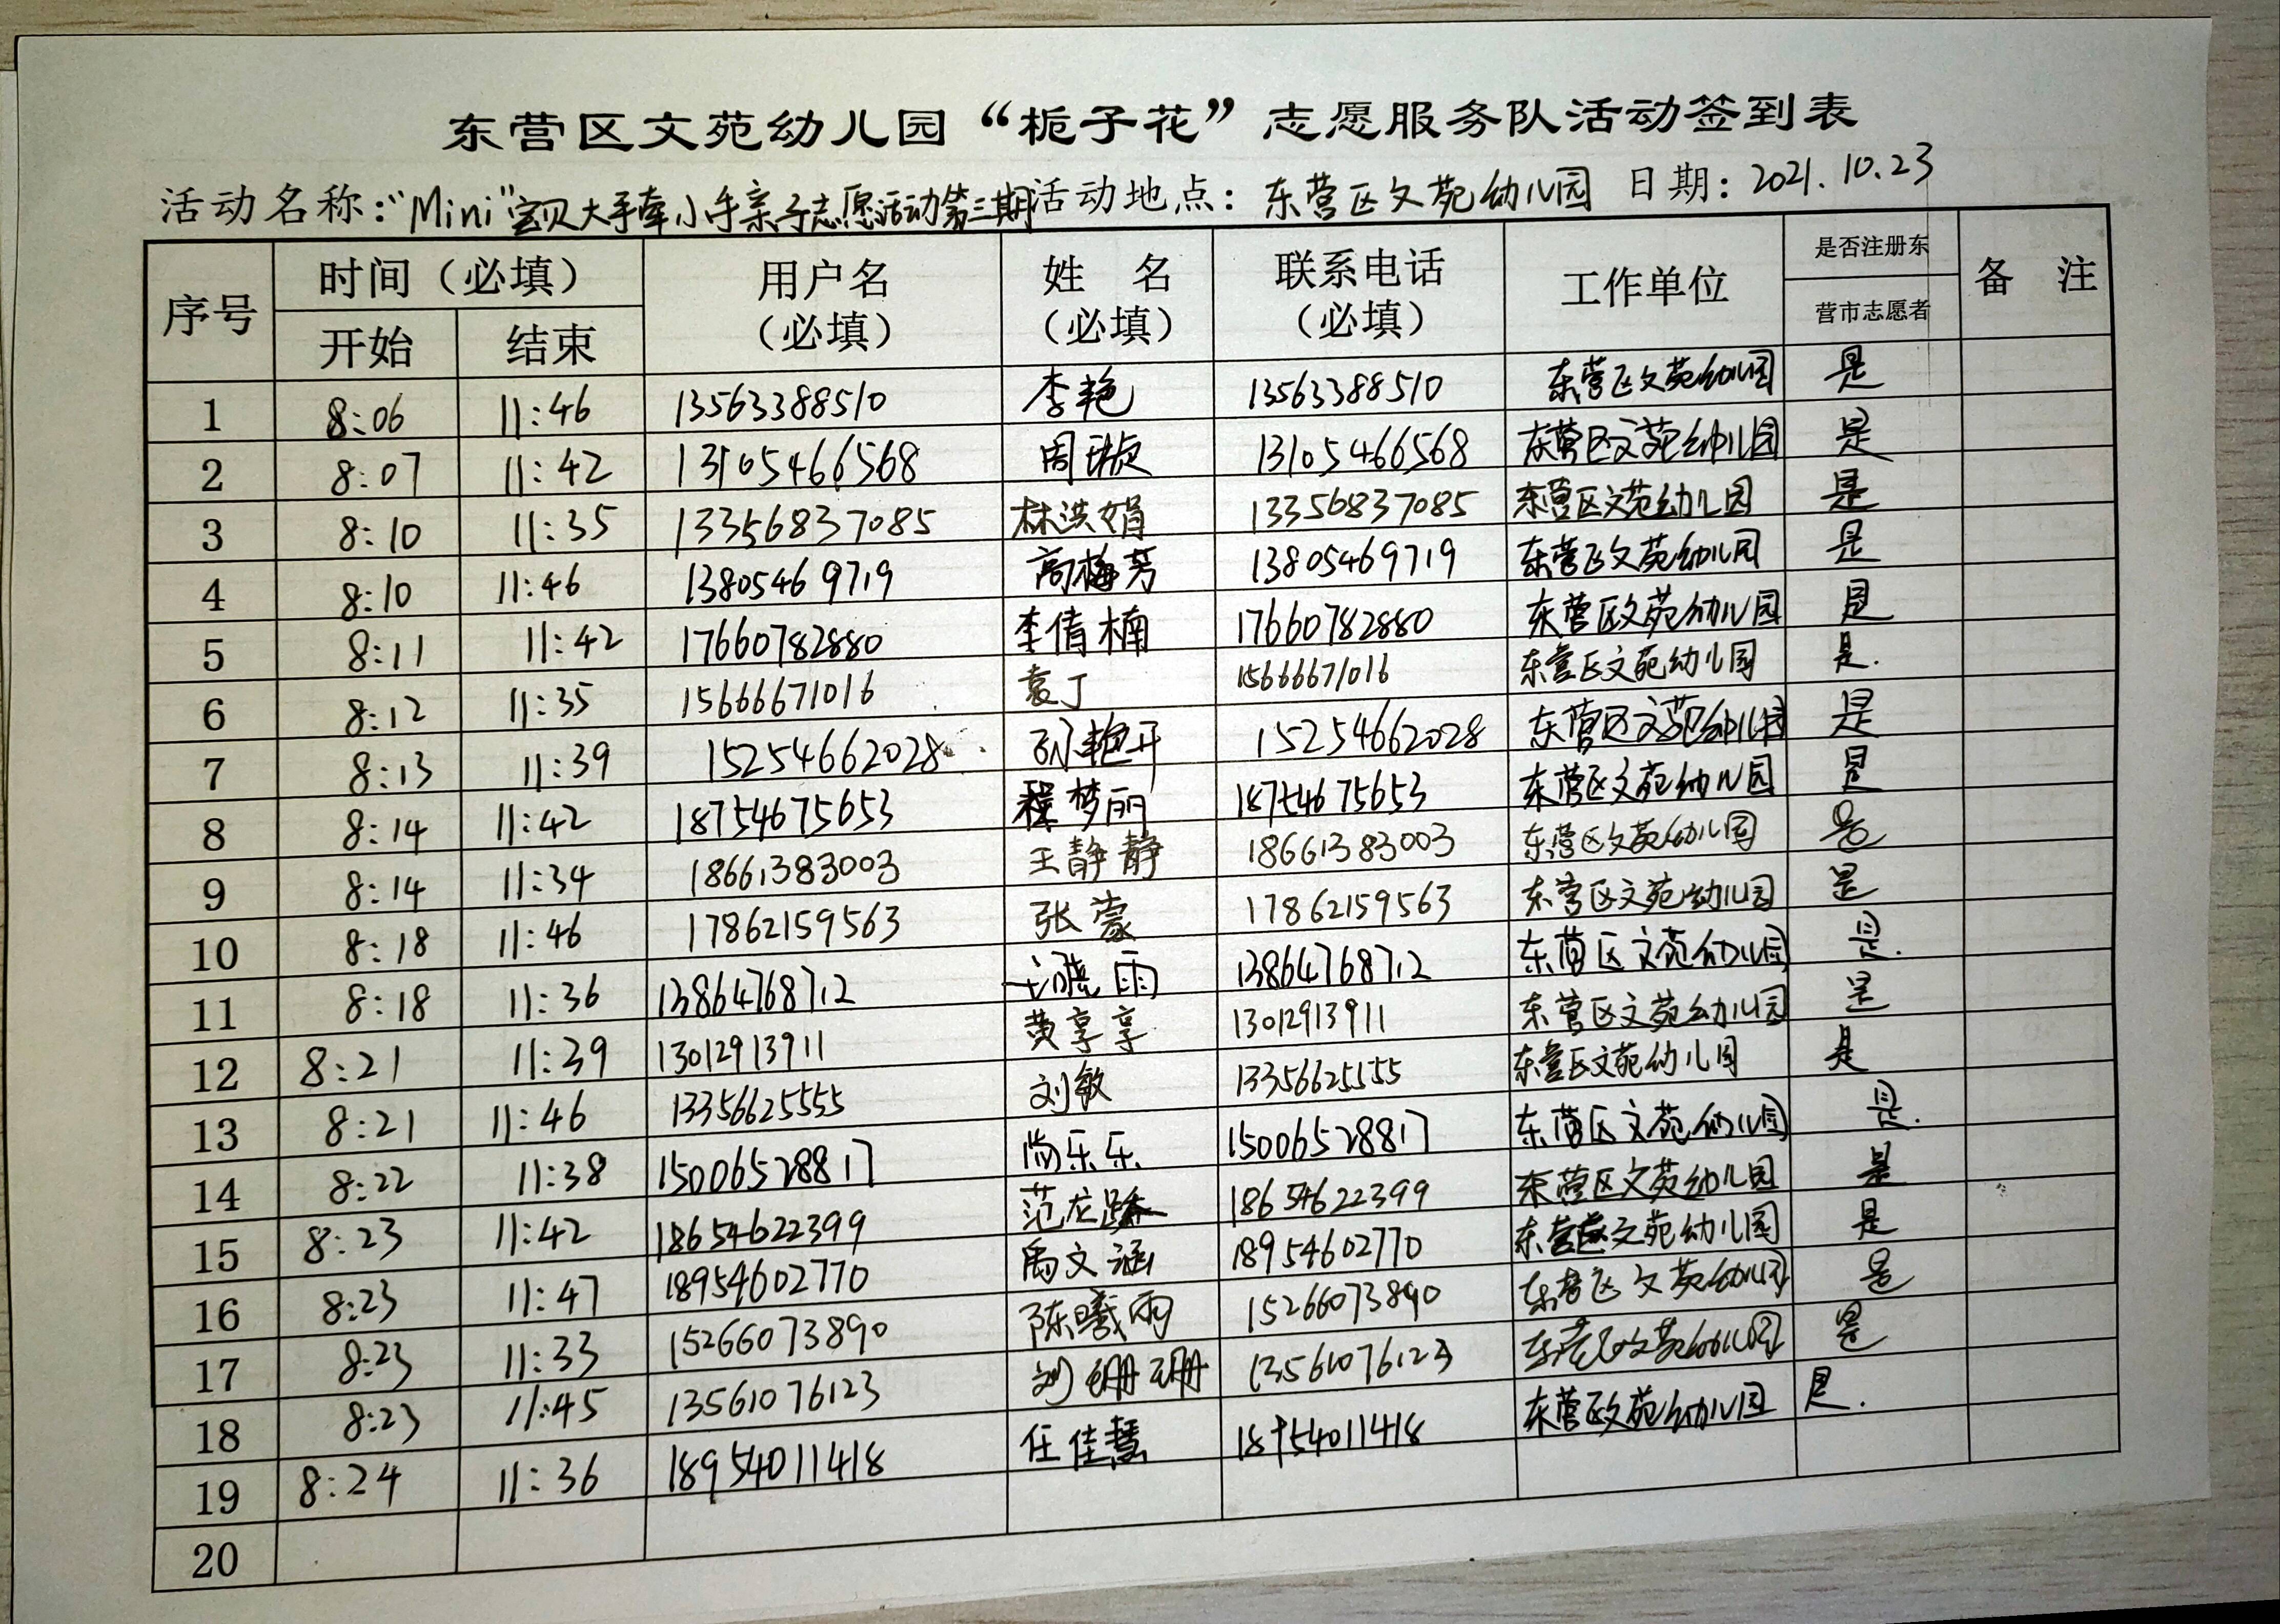 东营区文苑幼儿园“栀子花”志愿服务队活动签到表
活动名称：“Mini”宝贝大手牵小手亲子志愿活动第三期 活动地点：东营区文苑幼儿园 日期：2021.10.23
序号 时间（必填） 用户名（必填） 姓 名（必填） 联系电话（必填） 工作单位 是否注册东营市志愿者 备 注
开始 结束
1 8:06 11:46 13563388510 李艳 13563388510 东营区文苑幼儿园 是
2 8:07 11:42 13105466568 周璇 13105466568 东营区文苑幼儿园 是
3 8:10 11:35 13356837085 林洪娟 13356837085 东营区文苑幼儿园 是
4 8:10 11:46 13805469719 高梅芳 13805469719 东营区文苑幼儿园 是
5 8:11 11:42 17660782880 李倩楠 17660782880 东营区文苑幼儿园 是
6 8:12 11:35 15666671016 袁丁 15666671016 东营区文苑幼儿园 是.
7 8:13 11:39 15254662028 15254662028 东营区文苑幼儿园 是
8 8:14 11:42 18754675653 程梦丽 18754675653 东营区文苑幼儿园 是
9 8:14 11:34 18661383003 王静静 18661383003 东营区文苑幼儿园 是
10 8:18 11:46 17862159563 张蒙 17862159563 东营区文苑幼儿园 是
11 8:18 11:36 13864768712 晓雨 13864768712 东营区文苑幼儿园 是.
12 8:21 11:39 13012913911 黄享享 13012913911 东营区文苑幼儿园 是
13 8:21 11:46 13356625555 刘敏 13356625555 东营区文苑幼儿园 是
14 8:22 11:38 15006528817 尚乐乐 15006528817 东营区文苑幼儿园 是.
15 8:23 11:42 18654622399 范龙 18654622399 东营区文苑幼儿园 是
16 8:23 11:47 18954602770 禹文涵 18954602770 东营区文苑幼儿园 是
17 8:23 11:33 15266073890 陈曦雨 15266073890 东营区文苑幼儿园 是
18 8:23 11:45 13561076123 刘珊珊 13561076123 东营区文苑幼儿园 是
19 8:24 11:36 18954011418 任佳慧 18954011418 东营区文苑幼儿园 是.
20